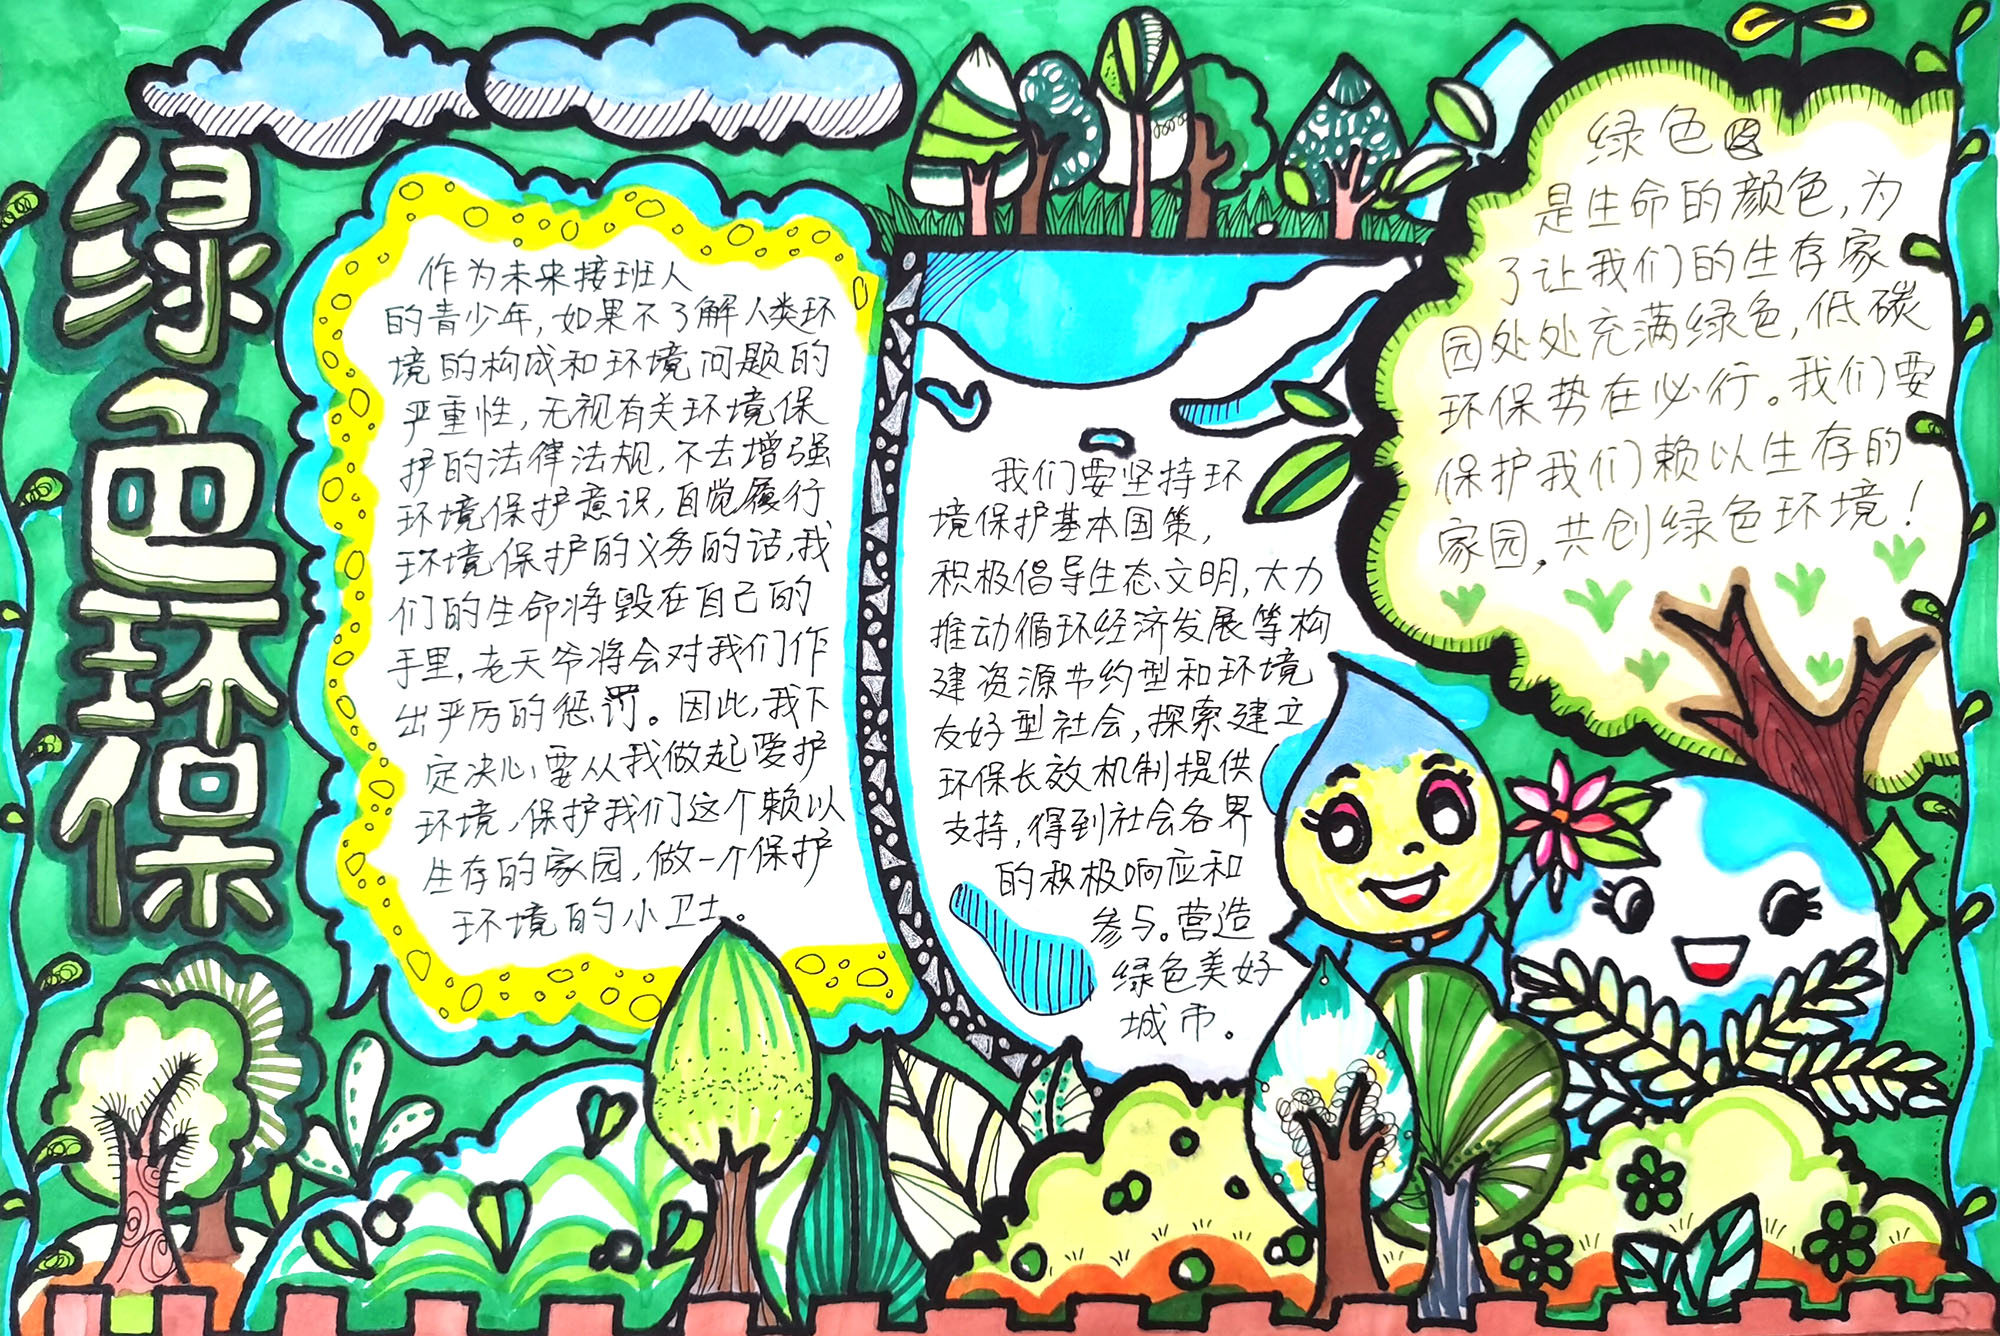 绿色环保
作为未来接班人
的青少年,如果不了解人类环
境的构成和环境问题的
严重性,无视有关环境保
护的法律法规,不去增强
环境保护意识,自觉履行
环境保护的义务的话,我
们的生命将毁在自己的
手里,老天爷将会对我们作
出严厉的惩罚。因此,我下
定决心,要从我做起爱护
环境,保护我们这个赖以
生存的家园,做一个保护
环境的小卫士。
我们要坚持环
境保护基本国策,
积极倡导生态文明,大力
推动循环经济发展等构
建资源节约型和环境
友好型社会,探索建立
环保长效机制提供
支持,得到社会各界
的积极响应和
参与。营造
绿色美好
城市。
绿色
是生命的颜色,为
了让我们的生存家
园处处充满绿色,低碳
环保势在必行。我们要
保护我们赖以生存的
家园,共创绿色环境!